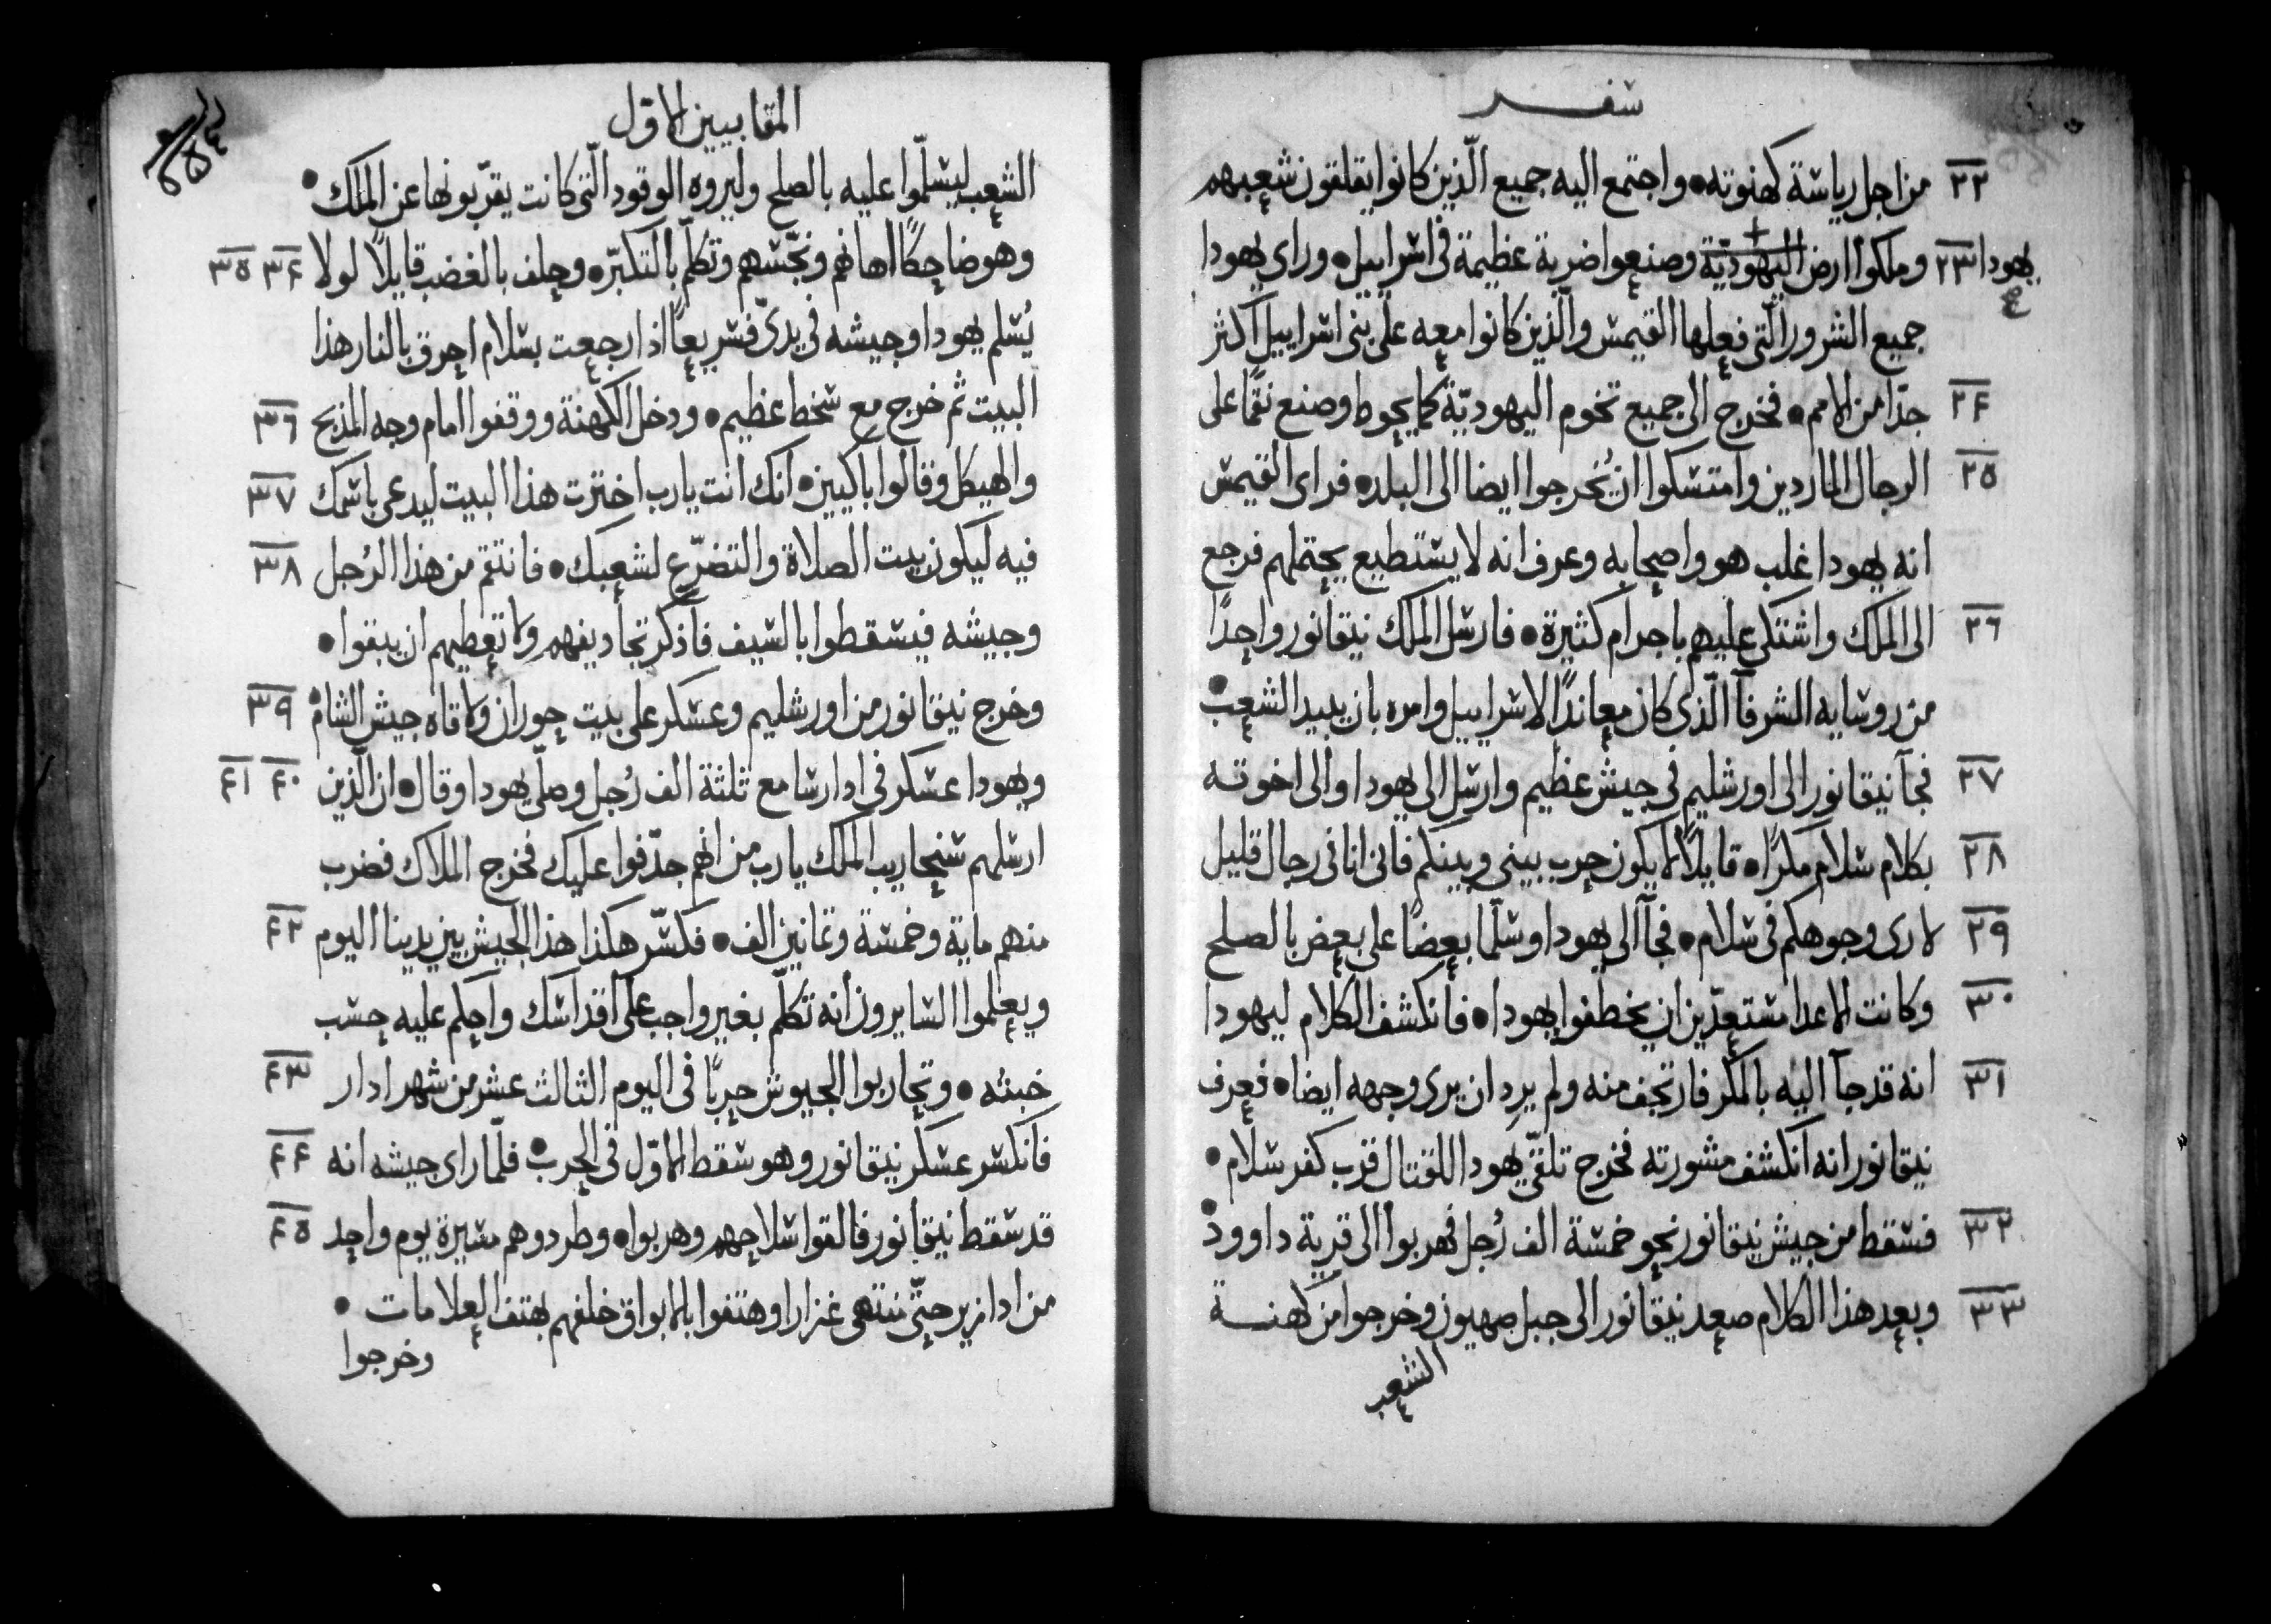 سفر
٢٢ من اجل رياسة كهنوته • واجتمع اليه جميع الّذين كانوا يقلقون شعبهم
يهودا ٢٣ وملكوا ارض اليهوديّة وصنعوا ضربة عظيمة في اسراييل • وراى يهودا
جميع الشرور الّتي فعلها القيمس والّذين كانوا معه على بني اسراييل اكثر
٢٤ جدّا من الامم • فخرج الى جميع تخوم اليهوديّة كما يحوط وصنع نقمًا على
٢٥ الرجال الماردين وامتسكوا ان يُخرجوا ايضا الى البلد • فراى القيمس
انه يهودا غلب هو واصحابه وعرف انه لا يستطيع يحتملهم فرجع
٢٦ الى الملك واشتكى عليهم باجرام كثيرة • فارسل الملك نيقانور واحدًا
من روسايه الشرفآ الّذي كان معاندًا لاسراييل وامره بان يبيد الشعب •
٢٧ فجآ نيقانور الى اورشليم في جيش عظيم وارسل الى يهودا والى اخوته
٢٨ بكلام سلام مكرًا • قايلًا لا يكون حرب بيني وبينكم فاني انا في رجال قليل
٢٩ لارى وجوهكم في سلام • فجآ الى يهودا وسلّما بعضًا على بعض بالصلح
٣٠ وكانت الاعدا مستعدّين ان يخطفوا يهودا • فانكشف الكلام ليهودا
٣١ انه قد جآ اليه بالمكر فارتجف منه ولم يرد ان يرى وجهه ايضا • فعرف
نيقانور انه انكشف مشورته فخرج تلقّى يهودا للقتال قرب كفر سلام •
٣٢ فسقط من جيش نيقانور نحو خمسة الف رُجل فهربوا الى قرية داوود •
٣٣ وبعد هذا الكلام صعد نيقانور الى جبل صهيون وخرجوا من كهنة
الشعب
المقابيين الاوّل
الشعب ليسلّموا عليه بالصلح وليروه الوقود الّتي كانت يقرّبونها عن الملك •
وهو ضاحكًا اهانهم ونجّسهم وتكلّم بالتكبّر • وحلف بالغضب قايلًا لولا ٣٤ ٣٥
يُسلم يهودا وجيشه في يديّ فسريعًا اذا رجعت بسلام احرق بالنار هذا
البيت ثم خرج مع سخط عظيم • ودخل الكهنة ووقفوا امام وجه المذبح ٣٦
والهيكل وقالوا باكيين • انك انت يارب اخترت هذا البيت ليدعى باسمك ٣٧
فيه ليكون بيت الصلاة والتضرّع لشعبك • فانتقم من هذا الرُجل ٣٨
وجيشه فيسقطوا بالسيف فاذكر تجاديفهم ولا تعطيهم ان يبقوا •
وخرج نيقانور من اورشليم وعسكر على بيت حوران ولاقاه جيش الشام • ٣٩
ويهودا عسكر في ادارسا مع ثلثة الف رُجل وصلّى يهودا وقال • ان الّذين ٤٠ ٤١
ارسلهم سنحاريب الملك يارب من انهم جدّفوا عليك فخرج الملاك فضرب
منهم ماية وخمسة وثمانين الف • فكسّر هكذا هذا الجيش بين يدينا اليوم ٤٢
ويعلموا السايرون انه تكلّم بغير واجب على اقداسك واحكم عليه حسب
خبثه • وتحاربوا الجيوش حربًا في اليوم الثالث عشر من شهر ادار ٤٣
فانكسر عسكر نيقانور وهو سقط الاوّل في الحرب • فلمّا راى جيشه انه ٤٤
قد سقط نيقانور فالقوا سلاحهم وهربوا • وطردوهم مسيرة يوم واحد ٤٥
من ادازير حتّى ننتهى غزارا وهتفوا بالابواق خلفهم بهتف العلامات •
وخرجوا